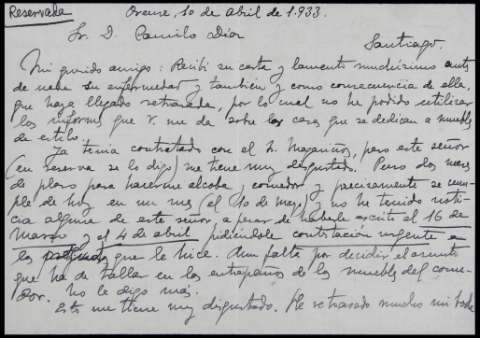 Reservada
Orense, 10 de abril de 1.933.
Sr. D. Camilo Díaz
Santiago.
Mi querido amigo: Recibí su carta y lamento muchísimo antes
de nada su enfermedad y también y como consecuencia de ella,
que haya llegado retrasada, por lo cual no he podido utilizar
los informes que V. me da sobre las casas que se dedican a muebles
de estilo.
Ya tenía contratado con el Sr. Magariños, pero este señor
(en reserva se lo digo) me tiene muy disgustado. Puso dos meses
de plazo para hacerme alcoba y comedor y precisamente se cum-
ple de hoy en un mes (el 10 de mayo) y no he tenido noti-
cia alguna de este señor, a pesar de haberle escrito el 16 de
marzo y el 4 de abril pidiéndole contestación urgente a
las que le hice. Aun falta por decidir el asunto
que ha de tallar en los entrepaños de los muebles del come-
dor. No le digo más.
Esto me tiene muy disgustado. He retrasado mucho mi boda